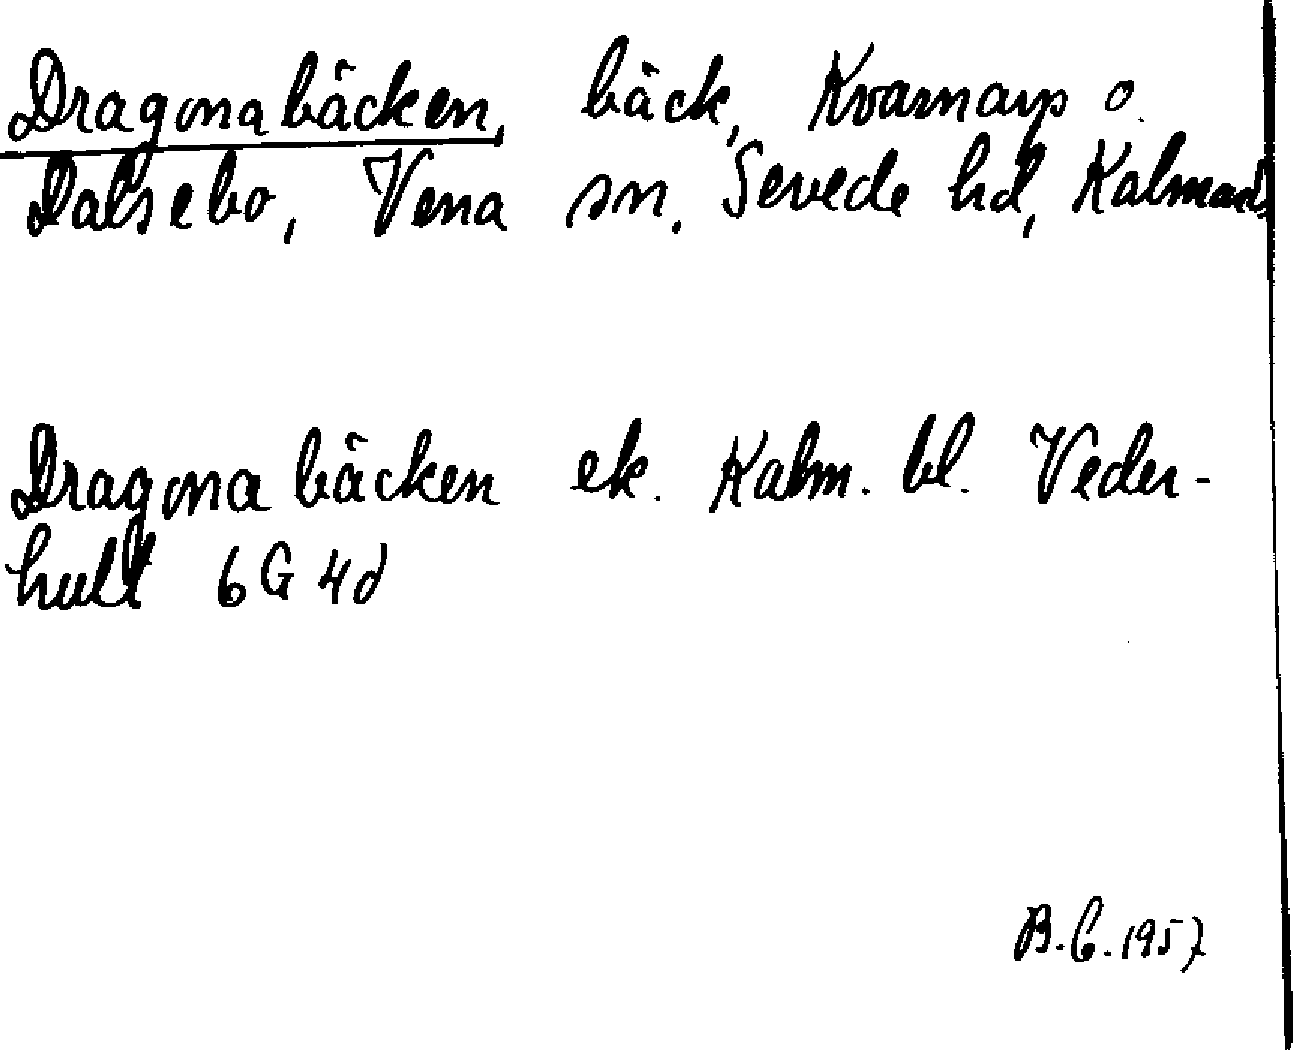 Dragonabäcken, bäck, Kvarnarp o.
Dalsebo, Vena sn, Sevede hd, Kalmar
Dragonabäcken ek. Kalm. bl. Veder-
hult 6G 4d
B.C. 1957